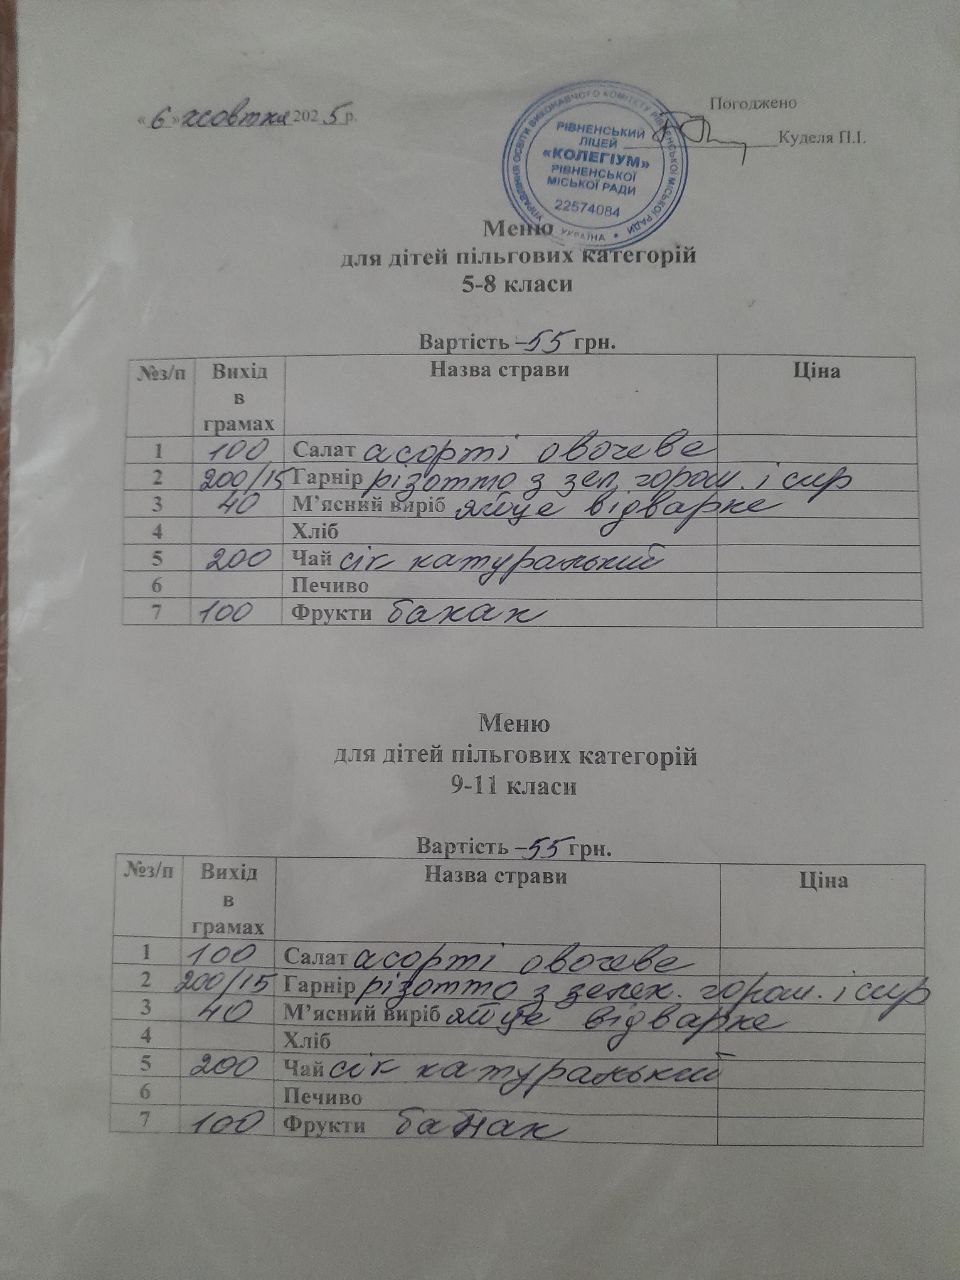 « 6 » жовтня 2025 р.
Погоджено
Куделя П.І.
УПРАВЛІННЯ ОСВІТИ ВИКОНАВЧОГО КОМІТЕТУ РІВНЕНСЬКОЇ МІСЬКОЇ РАДИ
РІВНЕНСЬКИЙ
ЛІЦЕЙ
«КОЛЕГІУМ»
РІВНЕНСЬКОЇ
МІСЬКОЇ РАДИ
22574084
УКРАЇНА
Меню
для дітей пільгових категорій
5-8 класи
Вартість – 55 грн.
№з/п Вихід в грамах Назва страви Ціна
1 100 Салат асорті овочеве
2 200/15 Гарнір різотто з зел. горош. і сир
3 40 М’ясний виріб яйце відварне
4 Хліб
5 200 Чай сік натуральний
6 Печиво
7 100 Фрукти банан
Меню
для дітей пільгових категорій
9-11 класи
Вартість – 55 грн.
№з/п Вихід в грамах Назва страви Ціна
1 100 Салат асорті овочеве
2 200/15 Гарнір різотто з зелен. горош. і сир
3 40 М’ясний виріб яйце відварне
4 Хліб
5 200 Чай сік натуральний
6 Печиво
7 100 Фрукти банан